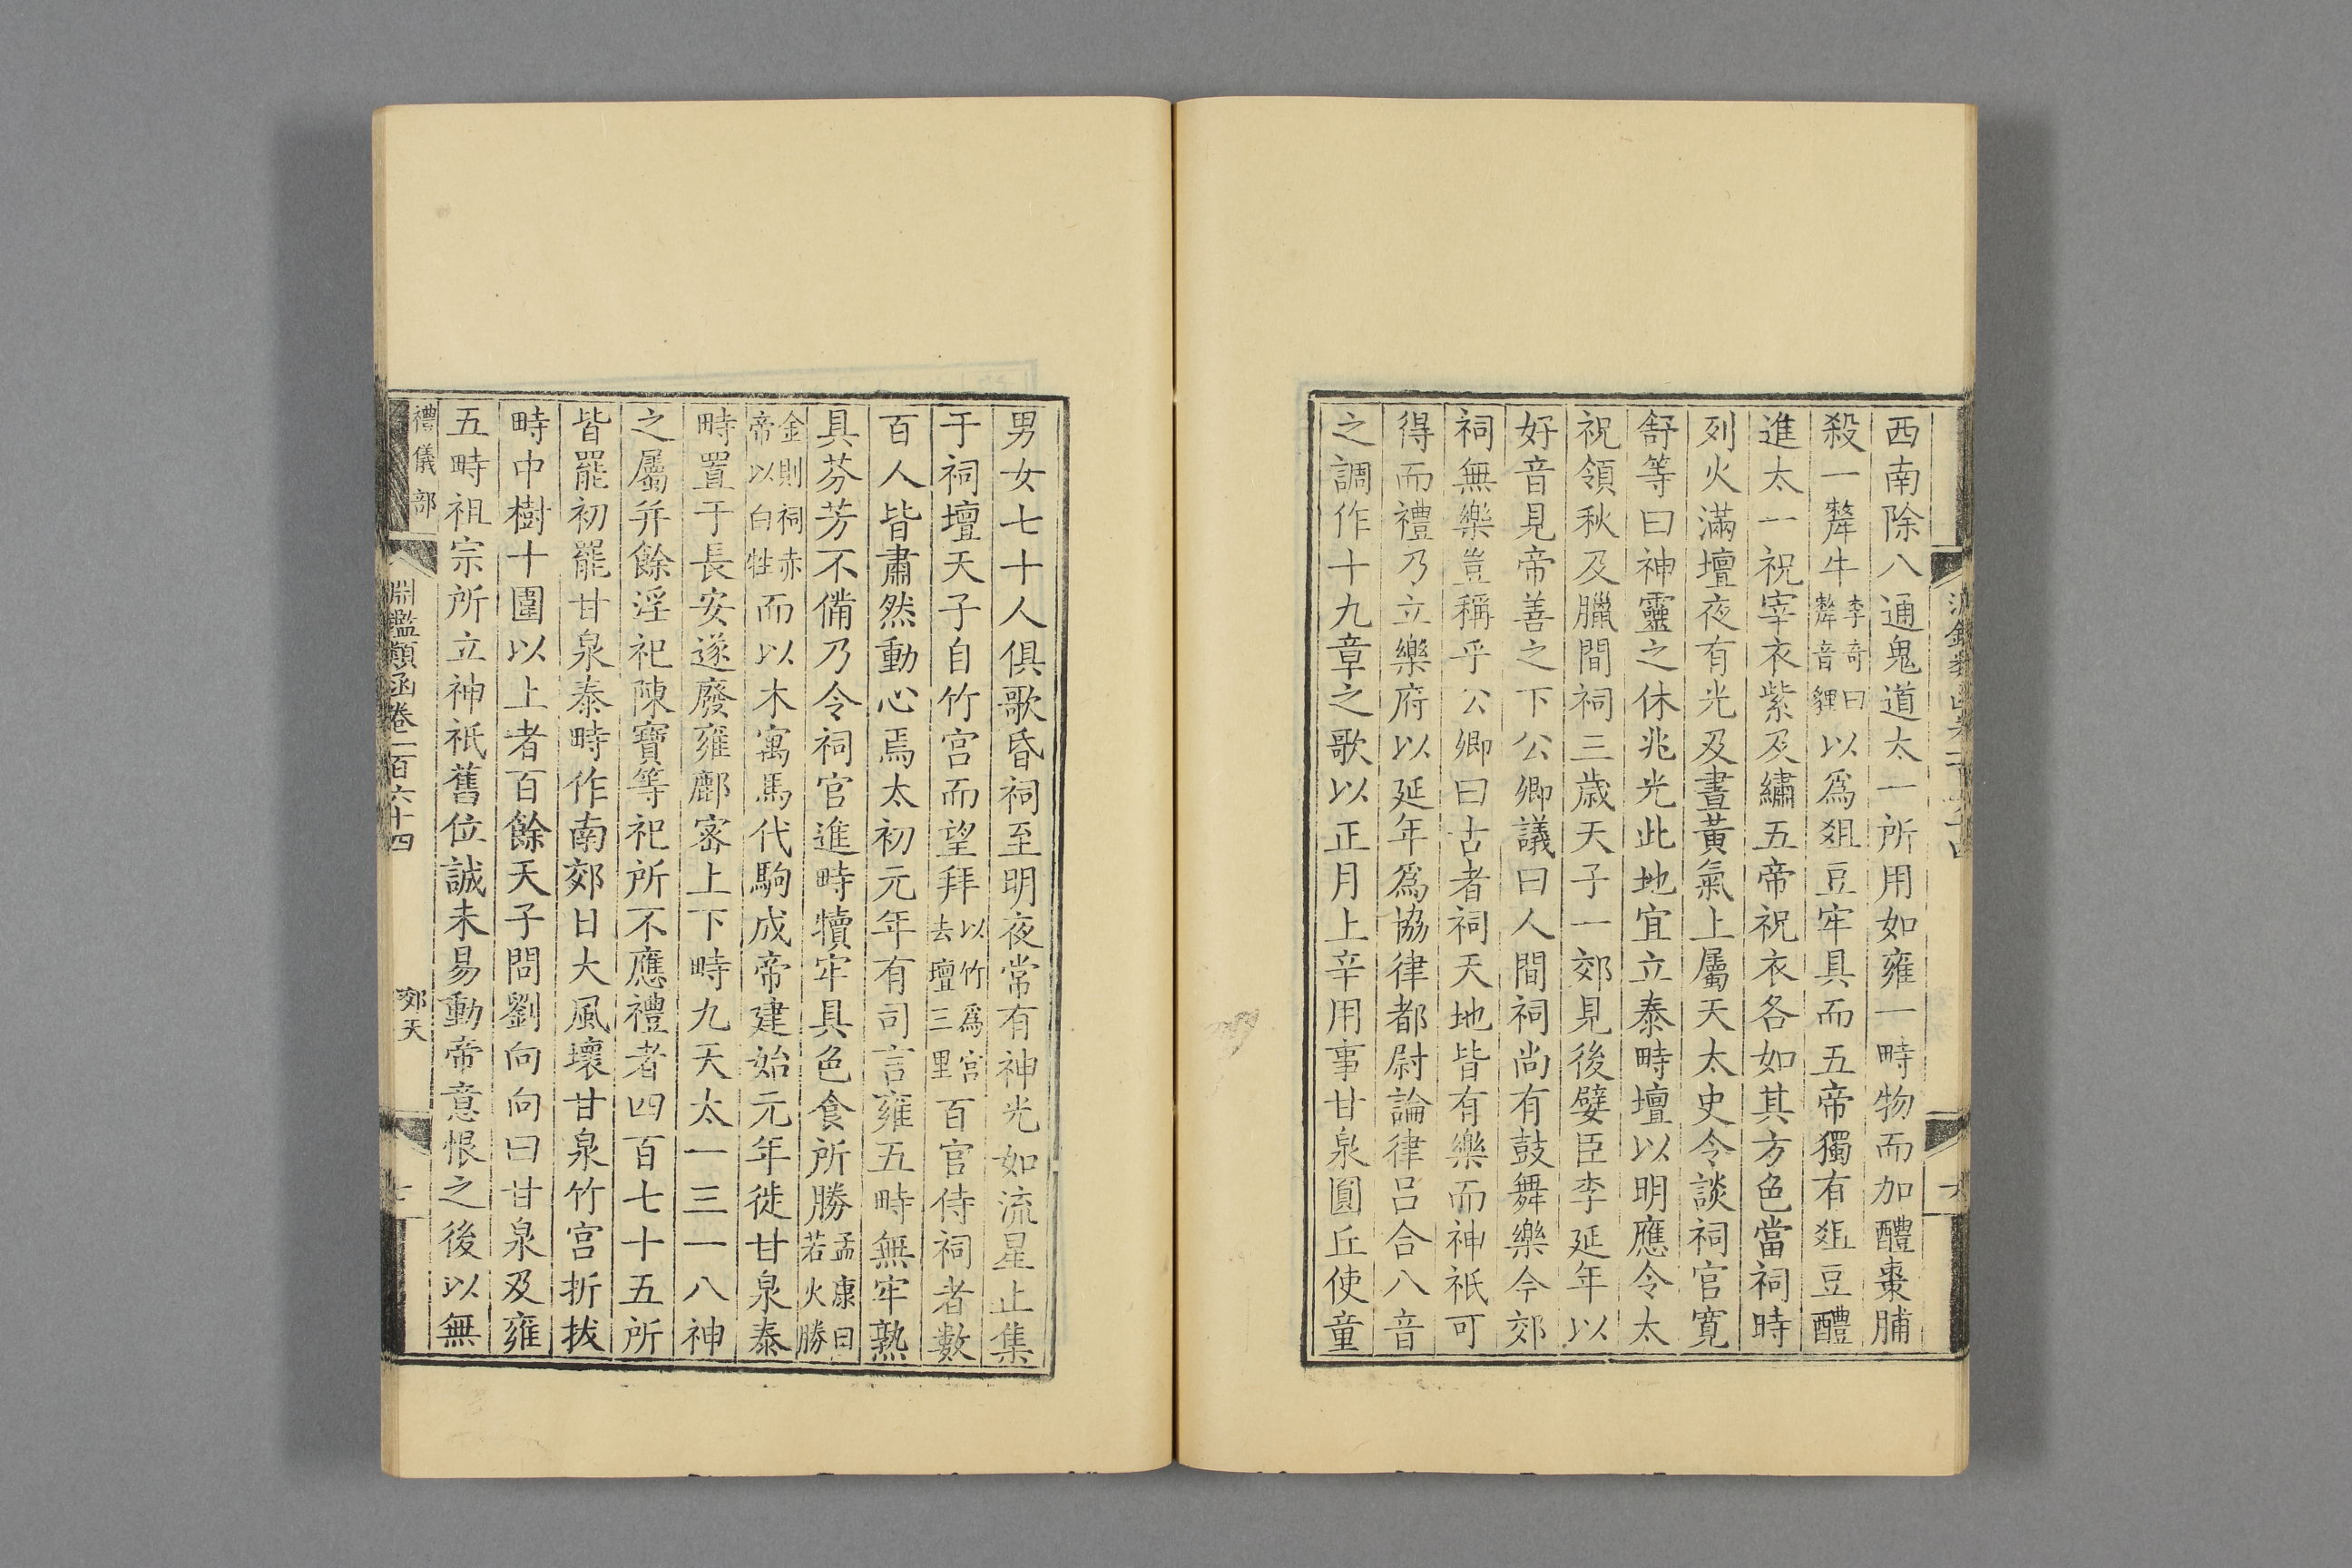 西南除八通鬼道太一所用如雍一畤物而加醴棗脯
殺一犛牛李奇曰犛音貍以爲俎豆牢具而五帝獨有俎豆醴
進太一祝宰衣紫及繡五帝祝衣各如其方色當祠時
列火滿壇夜有光及晝黃氣上屬天太史令談祠官寬
舒等曰神靈之休兆光此地宜立泰畤壇以明應令太
祝領秋及臘間祠三歲天子一郊見後嬖臣李延年以
好音見帝善之下公卿議曰人間祠尚有鼓舞樂今郊
祠無樂豈稱乎公卿曰古者祠天地皆有樂而神祇可
得而禮乃立樂府以延年爲協律都尉論律呂合八音
之調作十九章之歌以正月上辛用事甘泉圓丘使童
男女七十人俱歌昏祠至明夜常有神光如流星止集
于祠壇天子自竹宮而望拜以竹爲宮去壇三里百官侍祠者數
百人皆肅然動心焉太初元年有司言雍五畤無牢熟
具芬芳不備乃令祠官進畤犢牢具色食所勝孟康曰若火勝
金則祠赤帝以白牲而以木寓馬代駒成帝建始元年徙甘泉泰
畤置于長安遂廢雍鄜密上下畤九天太一三一八神
之屬并餘淫祀陳寶等祀所不應禮者四百七十五所
皆罷初罷甘泉泰畤作南郊日大風壞甘泉竹宮折拔
畤中樹十圍以上者百餘天子問劉向向曰甘泉及雍
五畤祖宗所立神祇舊位誠未易動帝意恨之後以無
禮儀部
淵鑑類函卷一百六十四
郊天
七